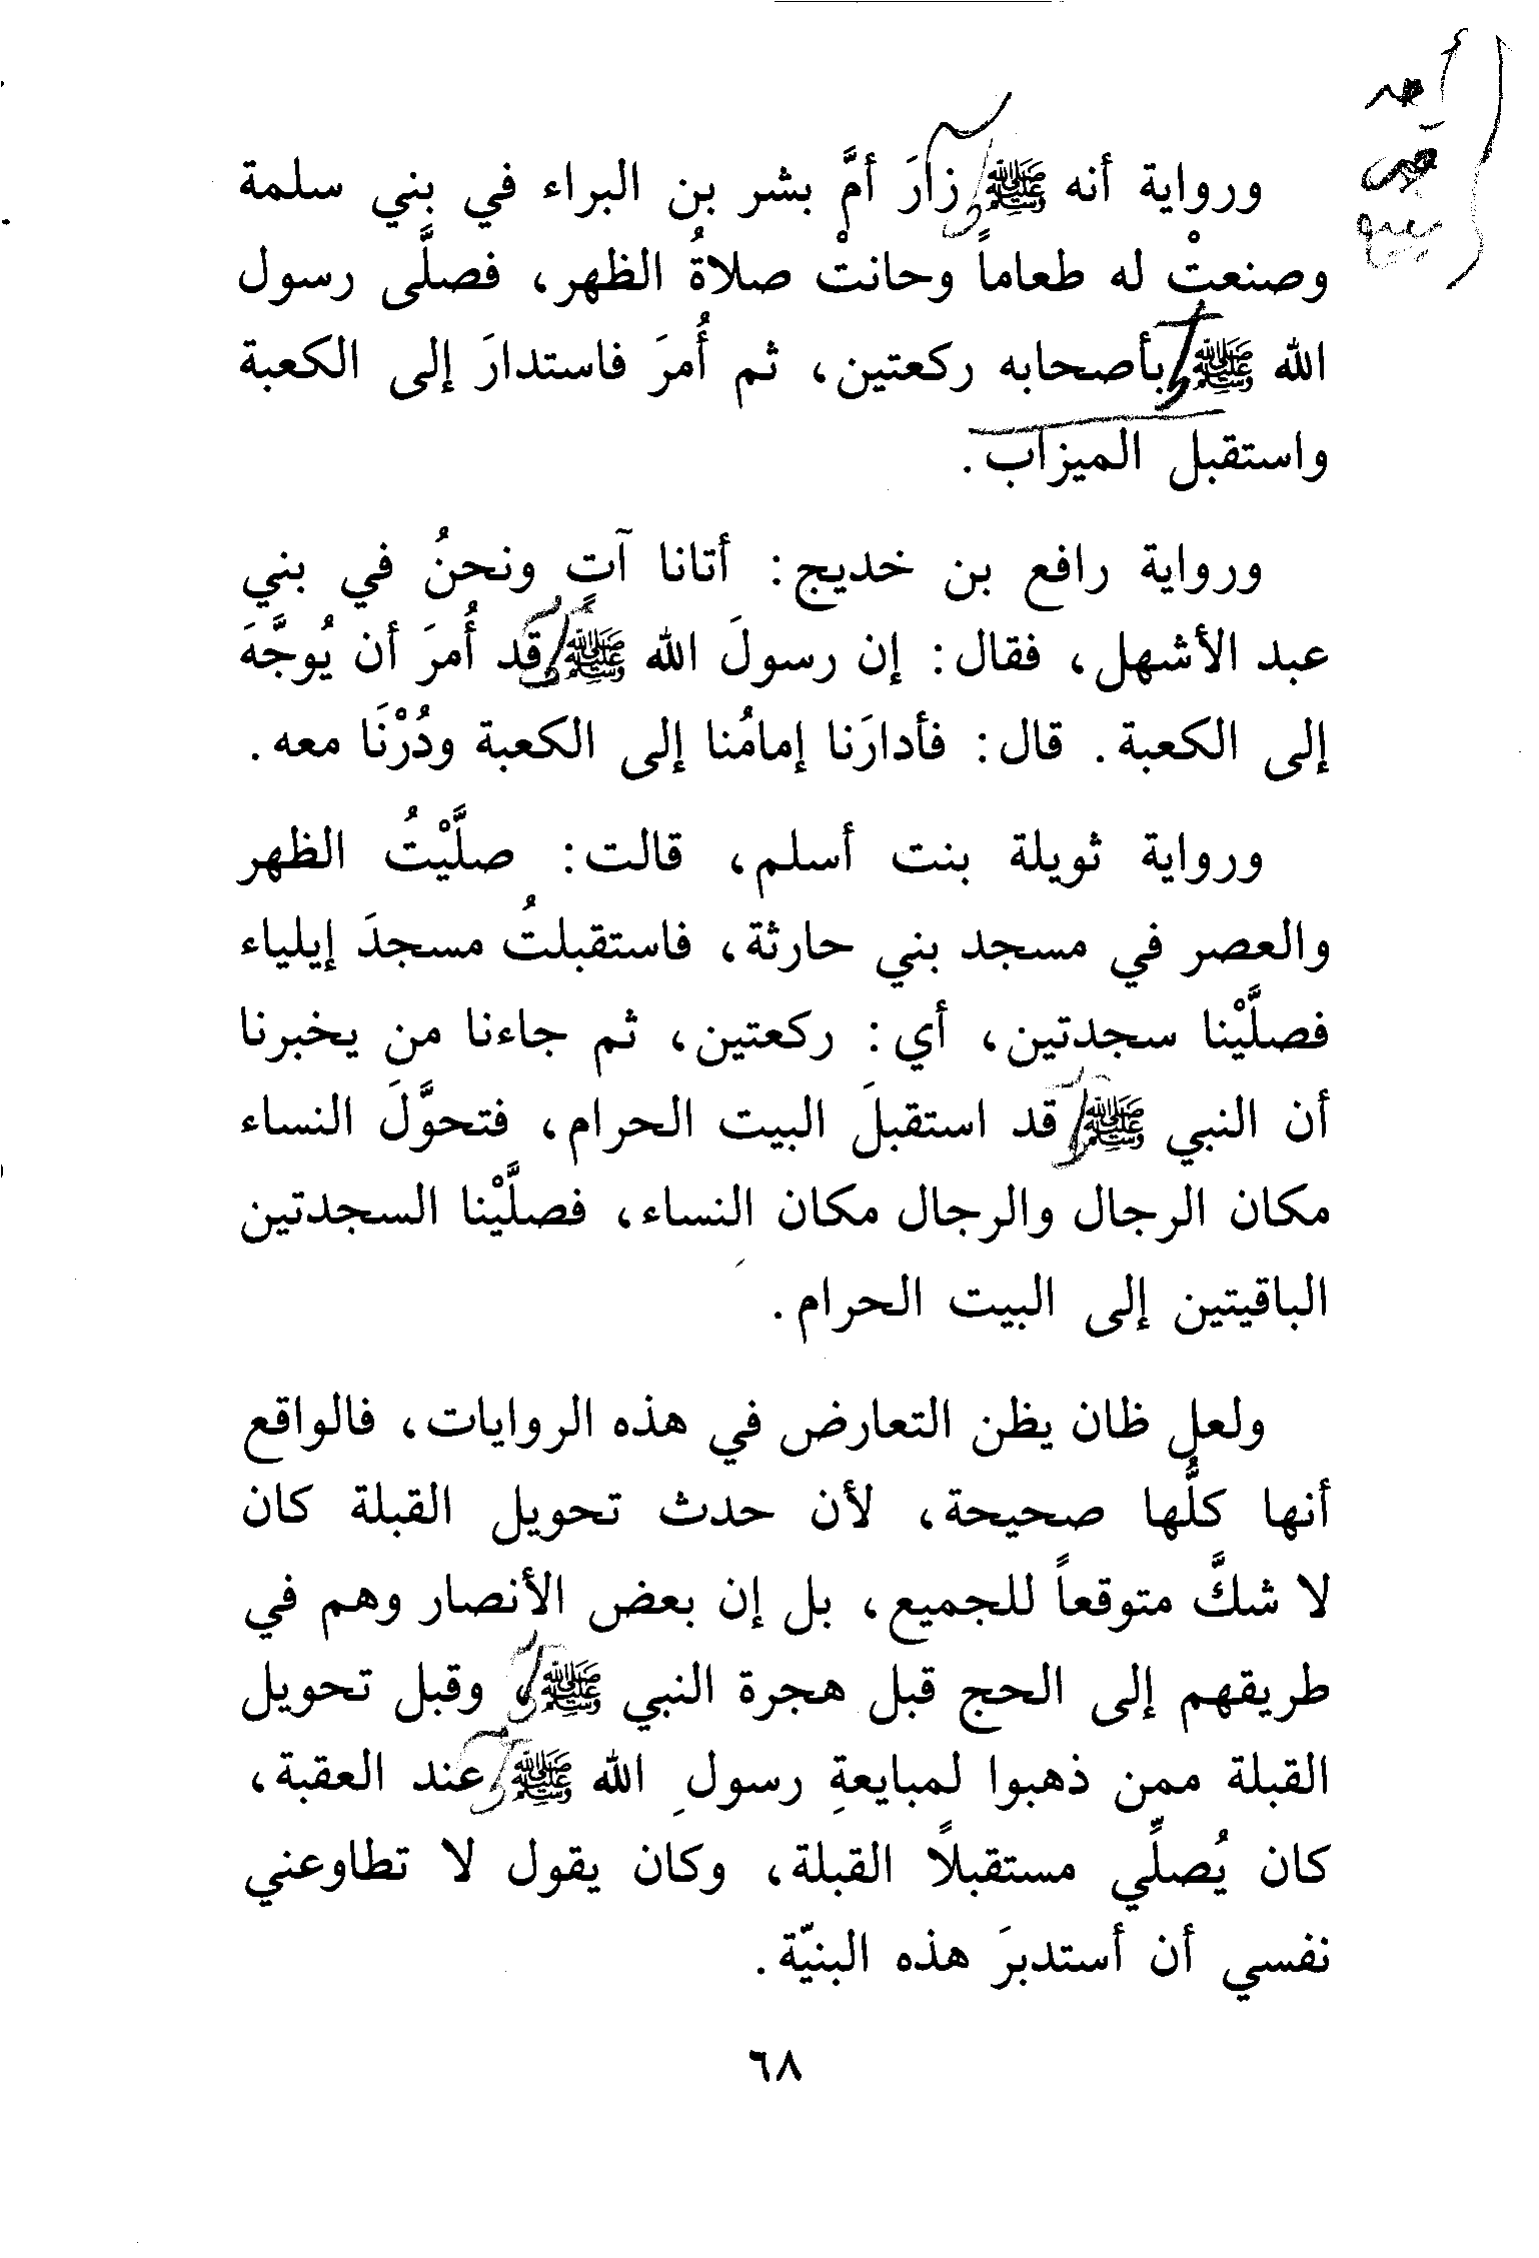 ورواية أنه ﷺ زارَ أمَّ بشر بن البراء في بني سلمة
وصنعتْ له طعاماً وحانتْ صلاةُ الظهر، فصلَّى رسول
الله ﷺ بأصحابه ركعتين، ثم أُمرَ فاستدارَ إلى الكعبة
واستقبل الميزاب.
ورواية رافع بن خديج: أتانا آتٍ ونحنُ في بني
عبد الأشهل، فقال: إن رسولَ الله ﷺ قد أُمرَ أن يُوجَّهَ
إلى الكعبة. قال: فأدارَنا إمامُنا إلى الكعبة ودُرْنَا معه.
ورواية ثويلة بنت أسلم، قالت: صلَّيْتُ الظهر
والعصر في مسجد بني حارثة، فاستقبلتُ مسجدَ إيلياء
فصلَّيْنا سجدتين، أي: ركعتين، ثم جاءنا من يخبرنا
أن النبي ﷺ قد استقبلَ البيت الحرام، فتحوَّلَ النساء
مكان الرجال والرجال مكان النساء، فصلَّيْنا السجدتين
الباقيتين إلى البيت الحرام.
ولعل ظان يظن التعارض في هذه الروايات، فالواقع
أنها كلُّها صحيحة، لأن حدث تحويل القبلة كان
لا شكَّ متوقعاً للجميع، بل إن بعض الأنصار وهم في
طريقهم إلى الحج قبل هجرة النبي ﷺ، وقبل تحويل
القبلة ممن ذهبوا لمبايعةِ رسولِ الله ﷺ عند العقبة،
كان يُصلِّي مستقبلاً القبلة، وكان يقول لا تطاوعني
نفسي أن أستدبرَ هذه البنيّة.
٦٨